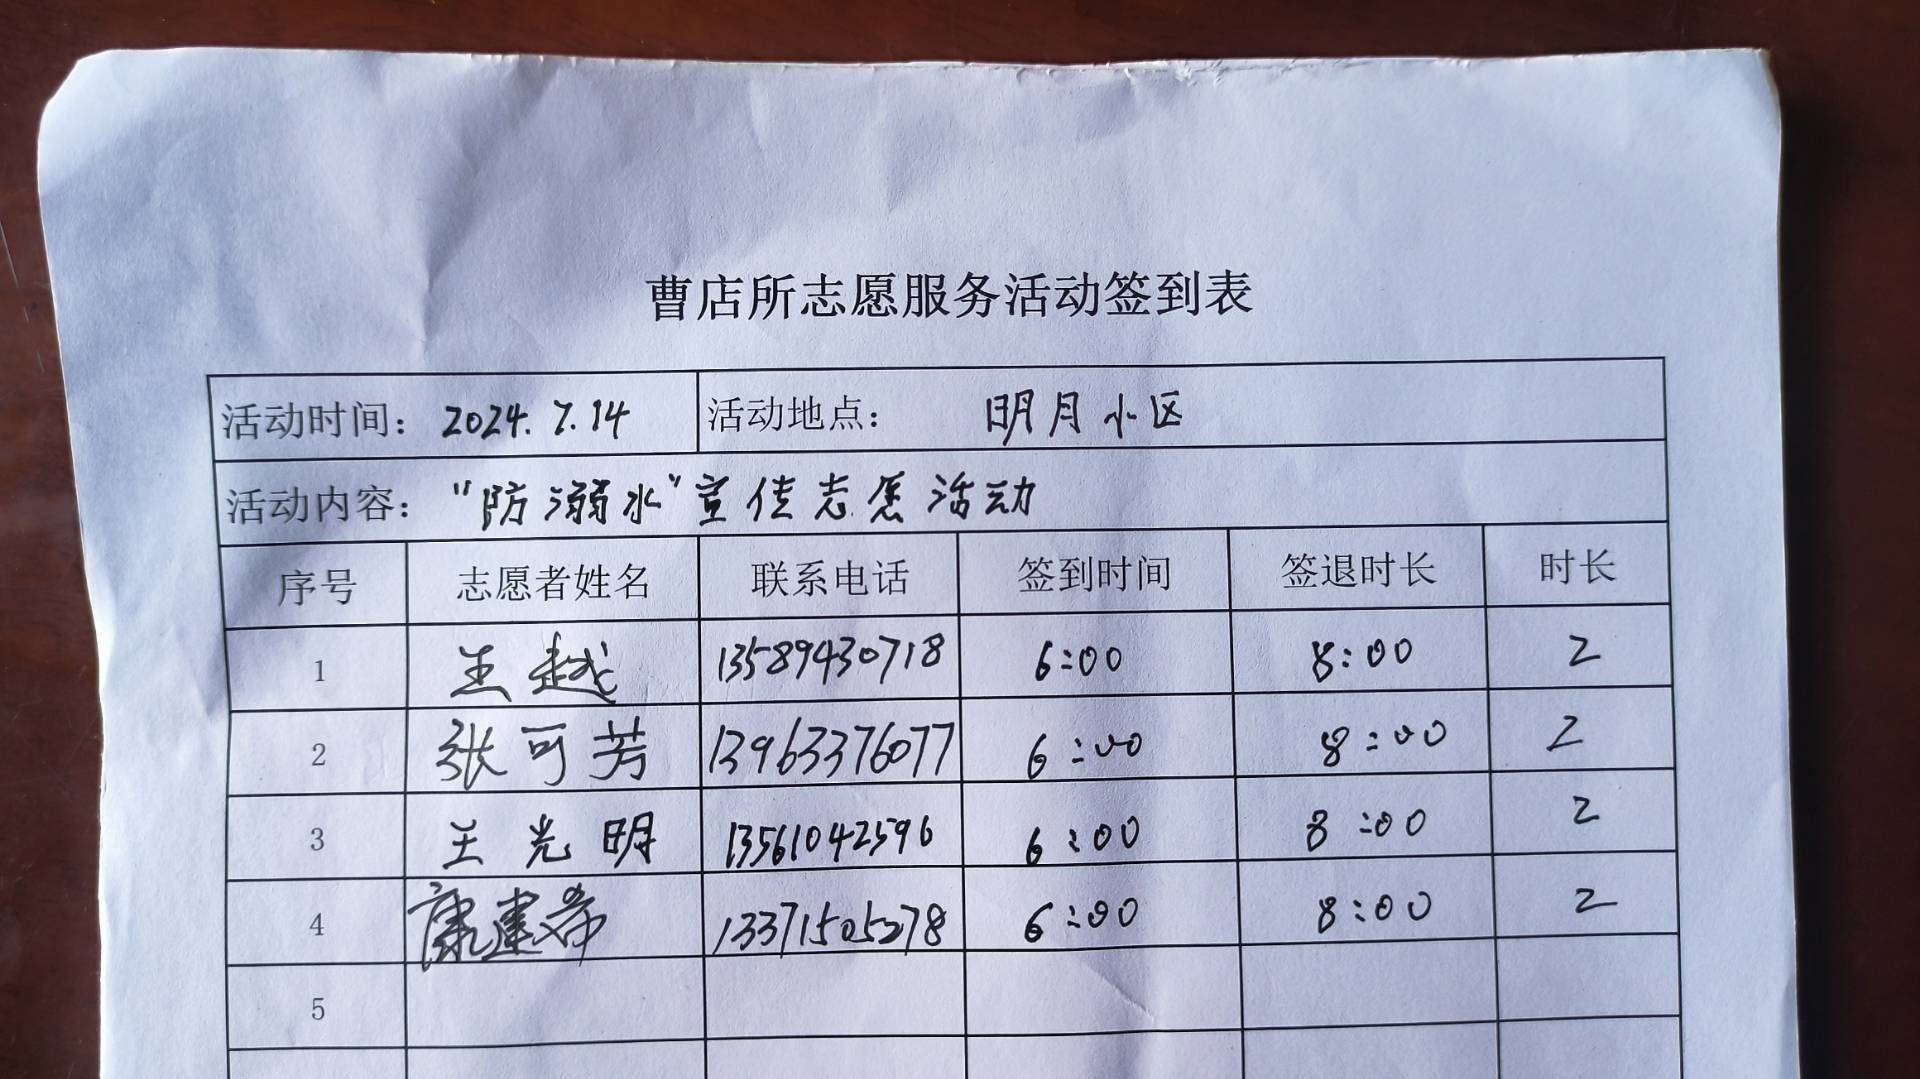 曹店所志愿服务活动签到表
活动时间: 2024.7.14 活动地点: 明月小区
活动内容: "防溺水"宣传志愿活动
序号 志愿者姓名 联系电话 签到时间 签退时长 时长
1 王越 13589430718 6:00 8:00 2
2 张可芳 13963376077 6:00 8:00 2
3 王光明 13561042596 6:00 8:00 2
4 康建希 13371505278 6:00 8:00 2
5